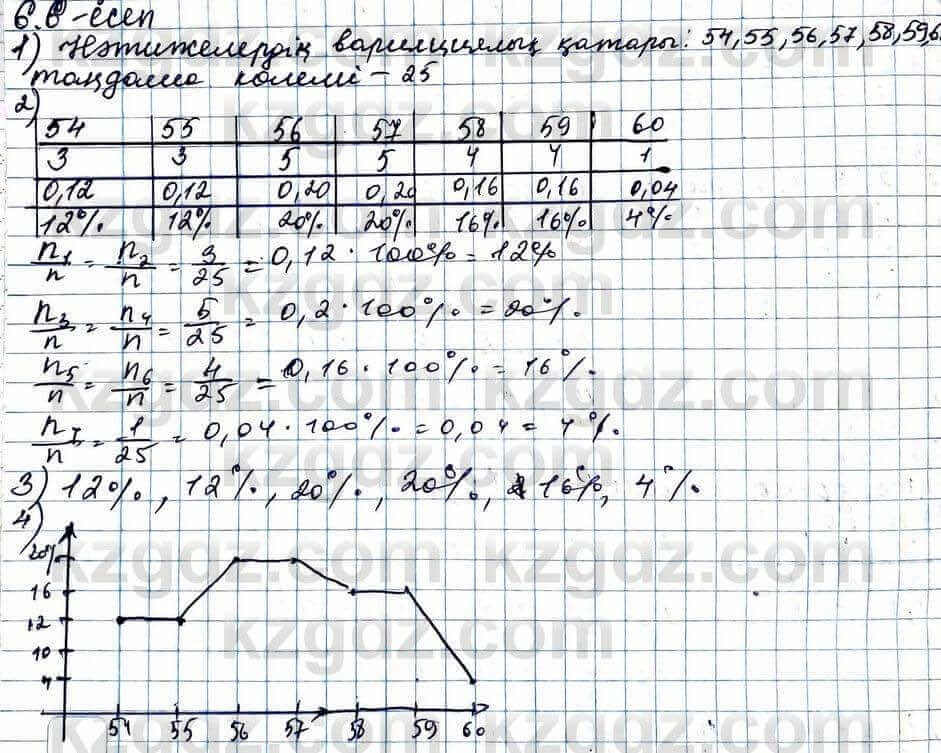 6.8-есеп
1) Нәтижелердің вариациялық қатары: 54, 55, 56, 57, 58, 59, 6
таңдама көлемі – 25
2)
54 55 56 57 58 59 60
3 3 5 5 4 4 1
0,12 0,12 0,20 0,20 0,16 0,16 0,04
12% 12% 20% 20% 16% 16% 4%
n1/n = n2/n = 3/25 = 0,12 · 100% = 12%
n3/n = n4/n = 5/25 = 0,2 · 100% = 20%.
n5/n = n6/n = 4/25 = 0,16 · 100% = 16%.
n7/n = 1/25 = 0,04 · 100% = 0,04 = 4%.
3) 12%, 12%, 20%, 20%, 16%, 4%.
4)
20%
16
12
10
4
54 55 56 57 58 59 60
kzgdz.com